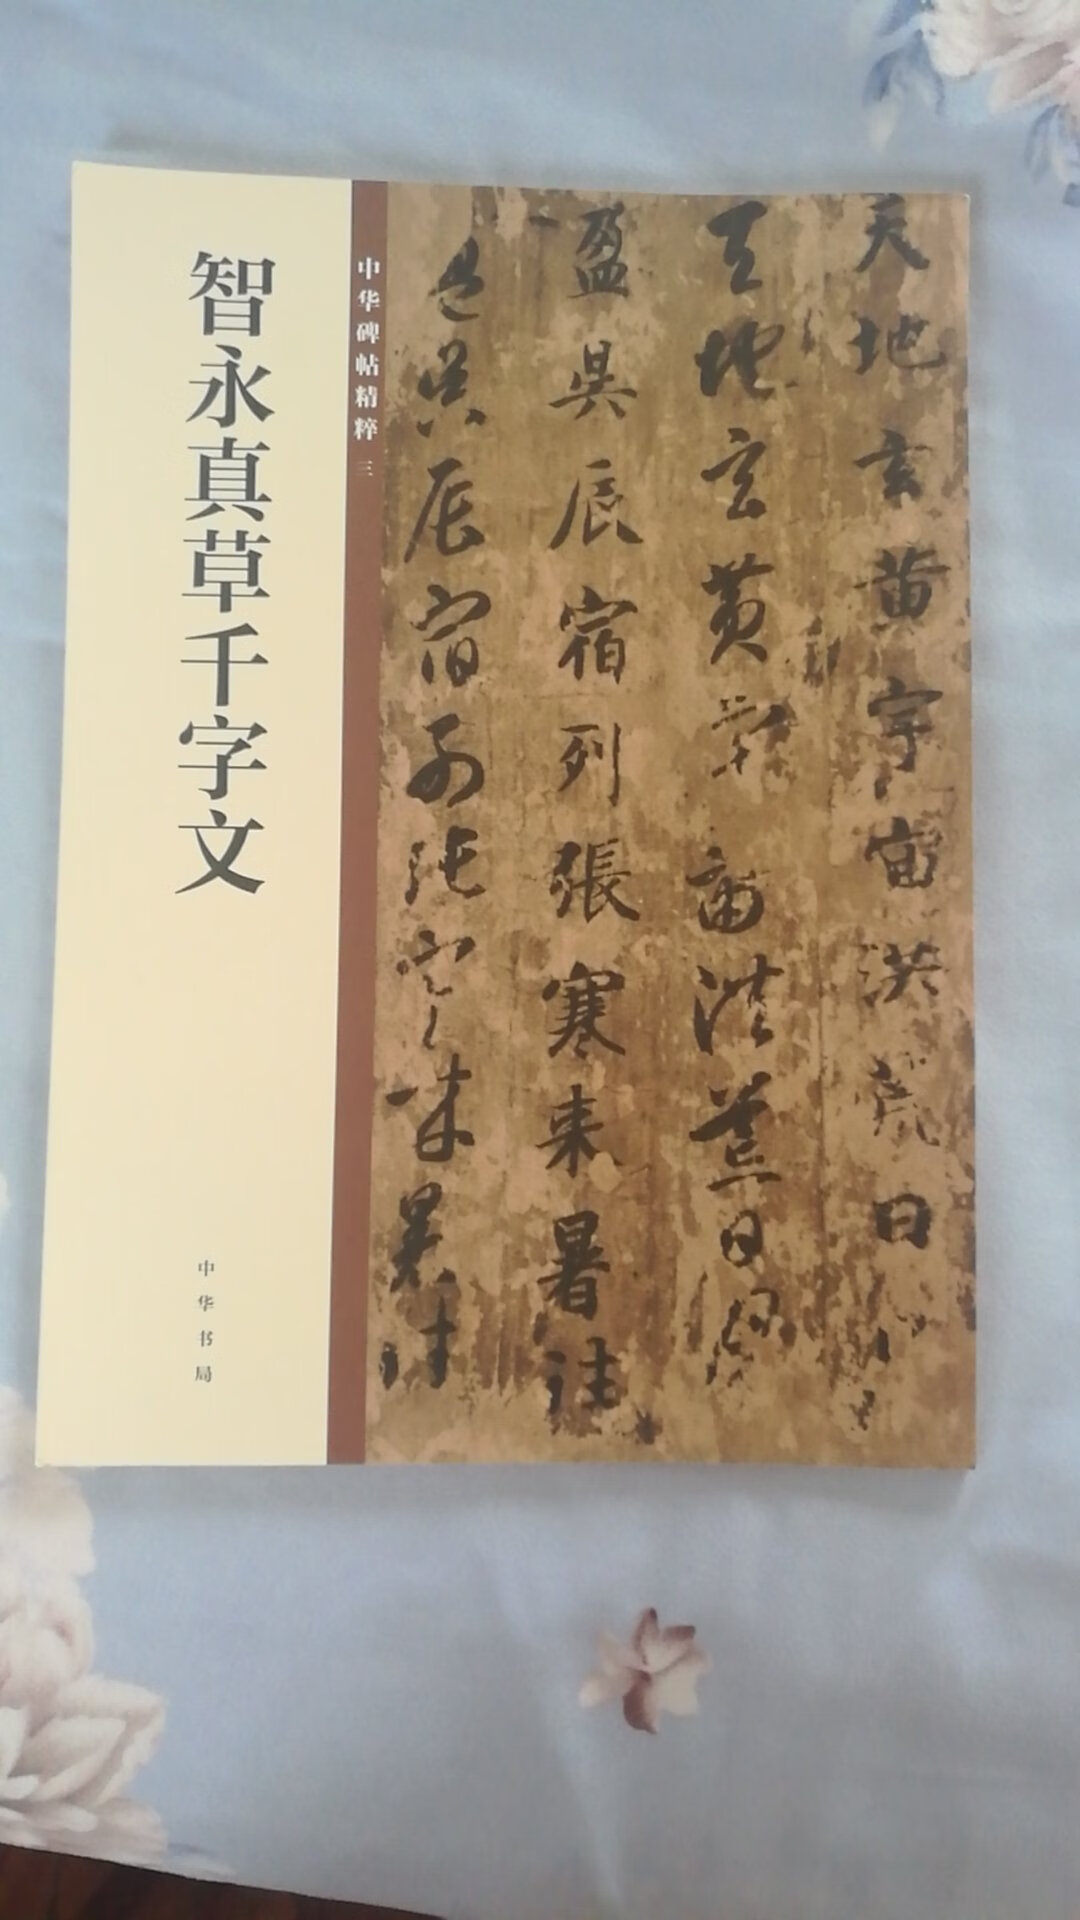 智永真草千字文
中华书局
中华碑帖精粹 三
天地玄黄宇宙洪荒日
天地玄黄宇宙洪荒日
盈昃辰宿列張寒来暑往
盈昃辰宿列張寒来暑往